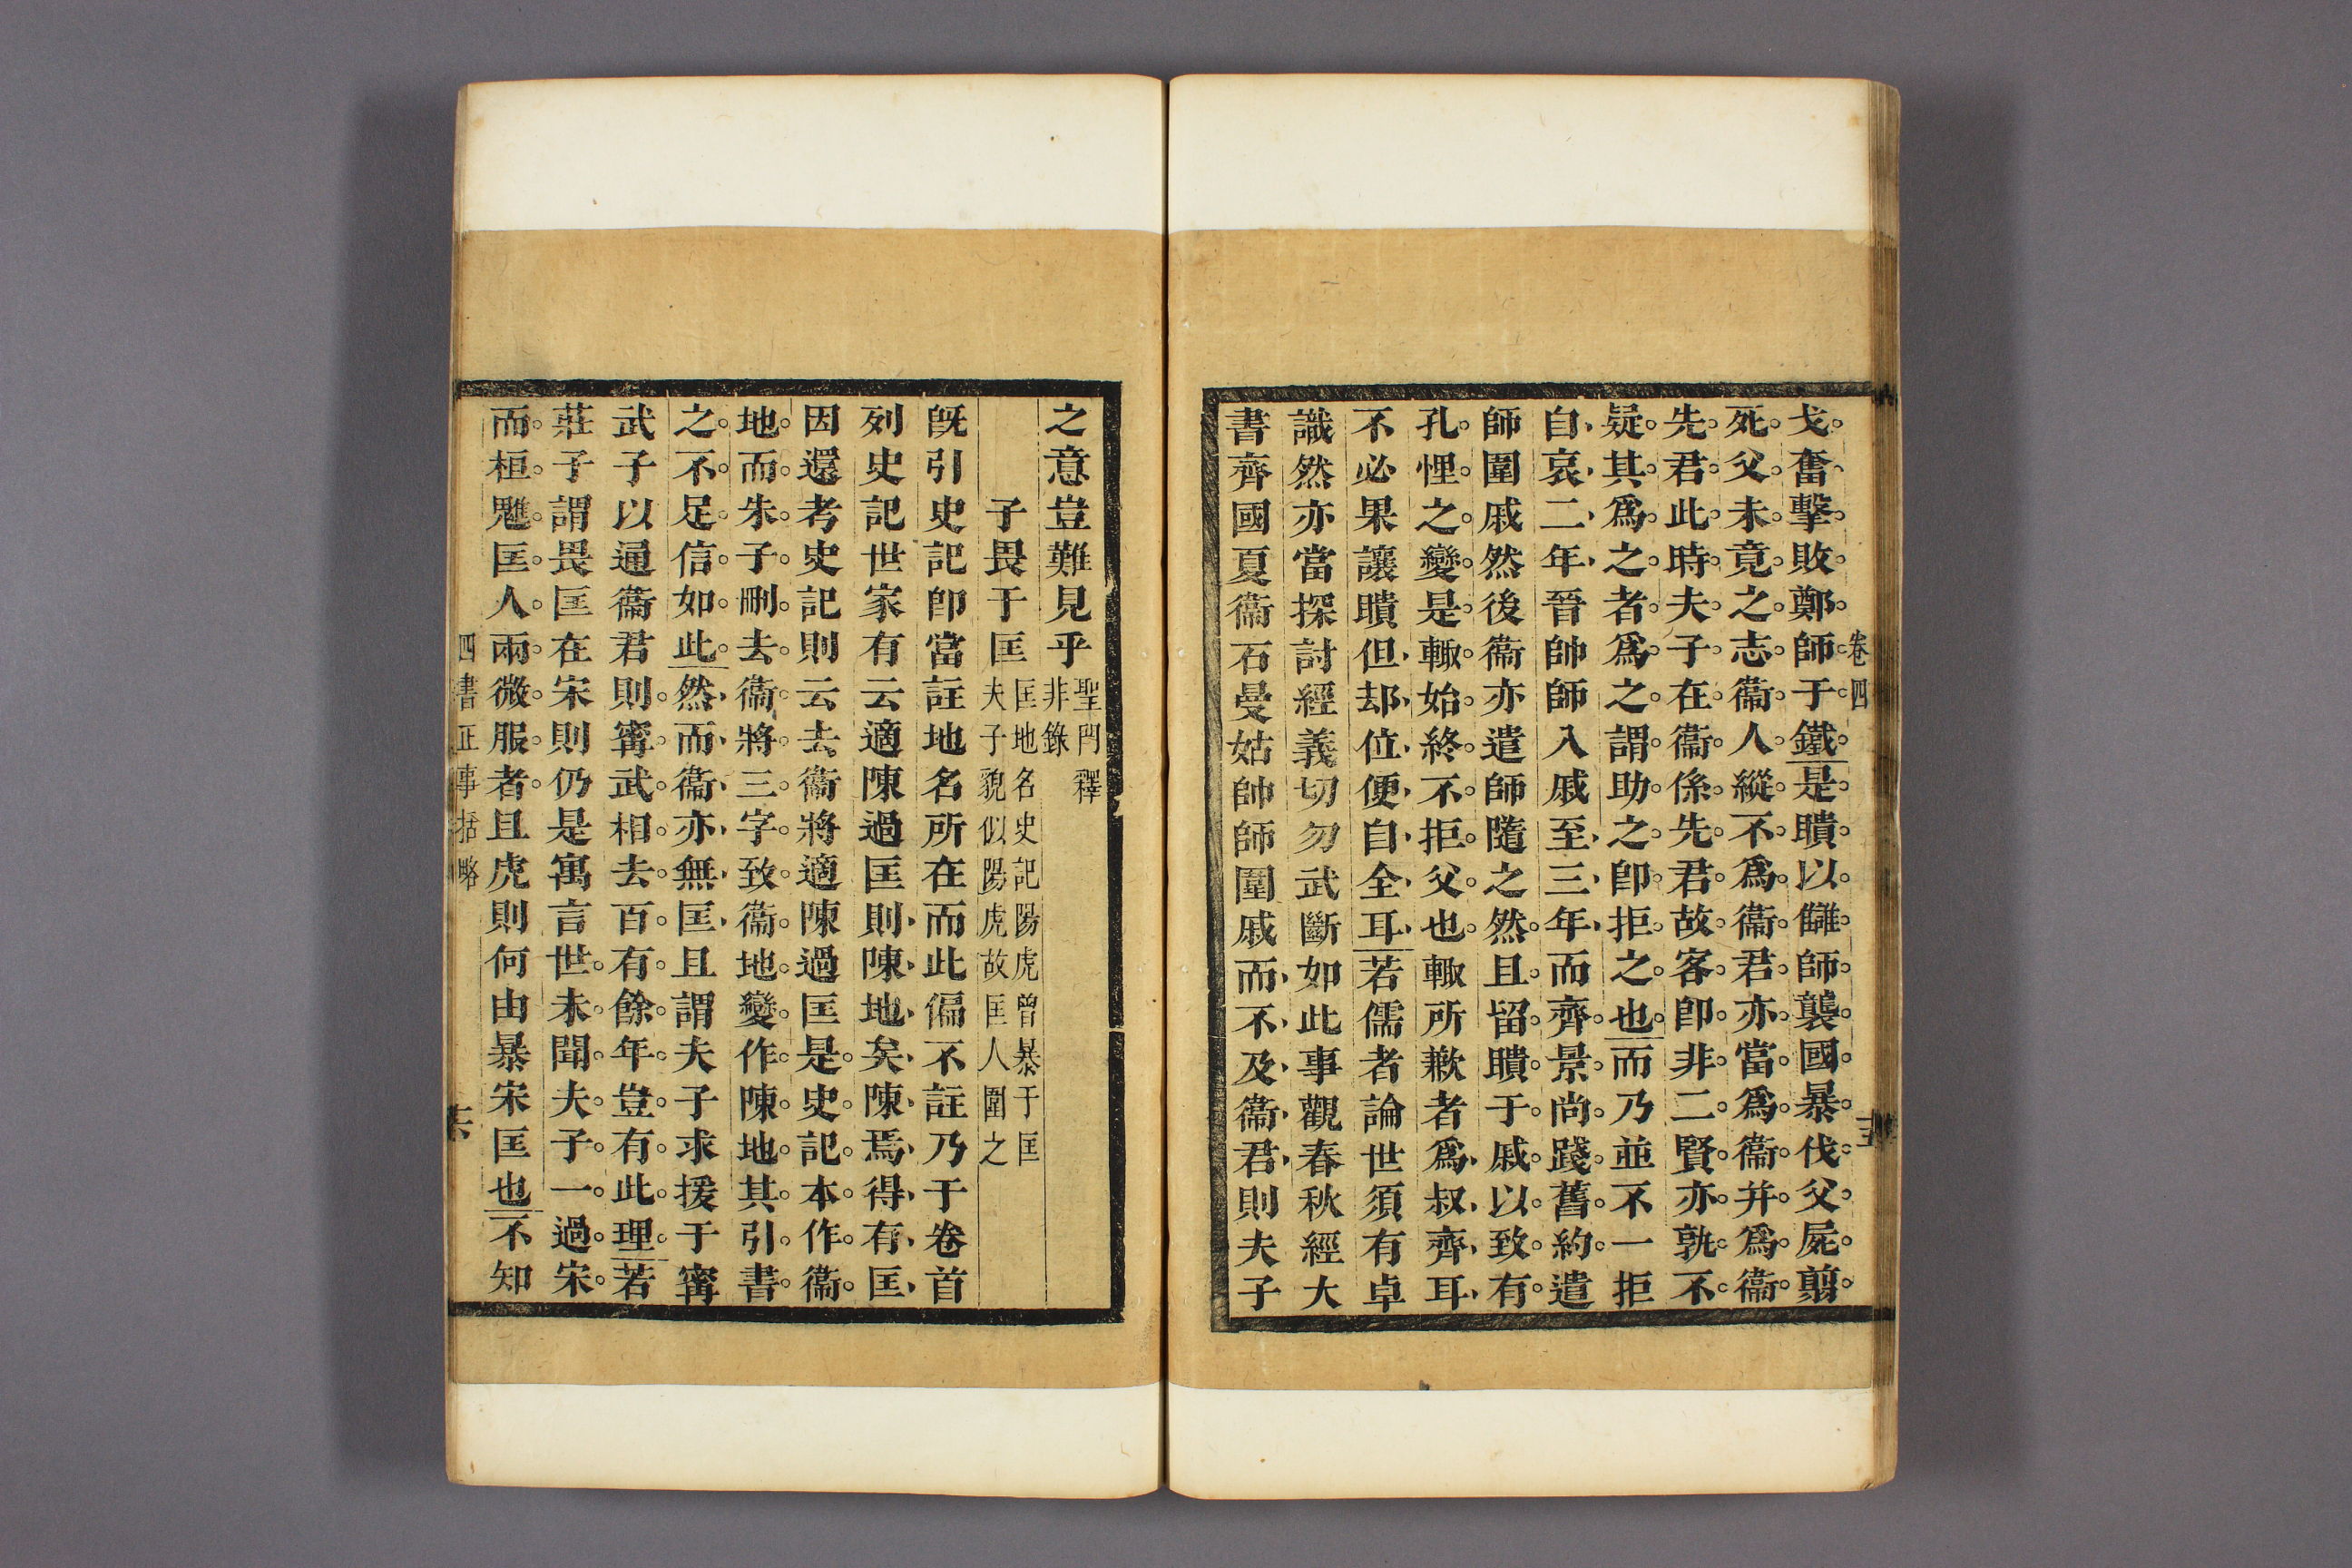 卷四
戈奮擊敗鄭師于鐵是聵以讎師襲國暴伐父屍翦
死父未竟之志衞人縱不爲衞君亦當爲衞并爲衞
先君此時夫子在衞係先君故客卽非二賢亦孰不
疑其爲之者爲之謂助之卽拒之也而乃並不一拒
自哀二年晉帥師入戚至三年而齊景尚踐舊約遣
師圍戚然後衞亦遣師隨之然且留聵于戚以致有
孔悝之變是輙始終不拒父也輙所歉者爲叔齊耳
不必果讓聵但却位便自全耳若儒者論世須有卓
識然亦當探討經義切勿武斷如此事觀春秋經大
書齊國夏衞石曼姑帥師圍戚而不及衞君則夫子
之意豈難見乎聖門釋
非錄
子畏于匡匡地名史記陽虎曾暴于匡
夫子貌似陽虎故匡人圍之
旣引史記卽當註地名所在而此偏不註乃于卷首
列史記世家有云適陳過匡則陳地矣陳焉得有匡
因還考史記則云去衞將適陳過匡是史記本作衞
地而朱子刪去衞將三字致衞地變作陳地其引書
之不足信如此然而衞亦無匡且謂夫子求援于甯
武子以通衞君則甯武相去百有餘年豈有此理若
莊子謂畏匡在宋則仍是寓言世未聞夫子一過宋
而桓魋匡人兩微服者且虎則何由暴宋匡也不知
四書正事括略